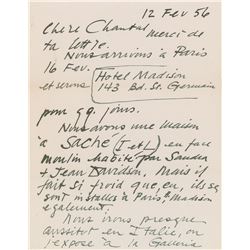 12 Fev 56
Chère Chantal merci de
ta lettre.
Nous arrivons à Paris
16 Fev.
et serons Hotel Madison
143 Bd. St. Germain
pour qq. jours.
Nous avons une maison
à Saché (I et L) en face
moulin habité par Sandra
+ Jean Davidson, mais il
fait si froid que, eu, ils se
sont installés à Paris, Madison
également.
Nous irons presque
aussitot en Italie, ou
j'expose à la Galleria